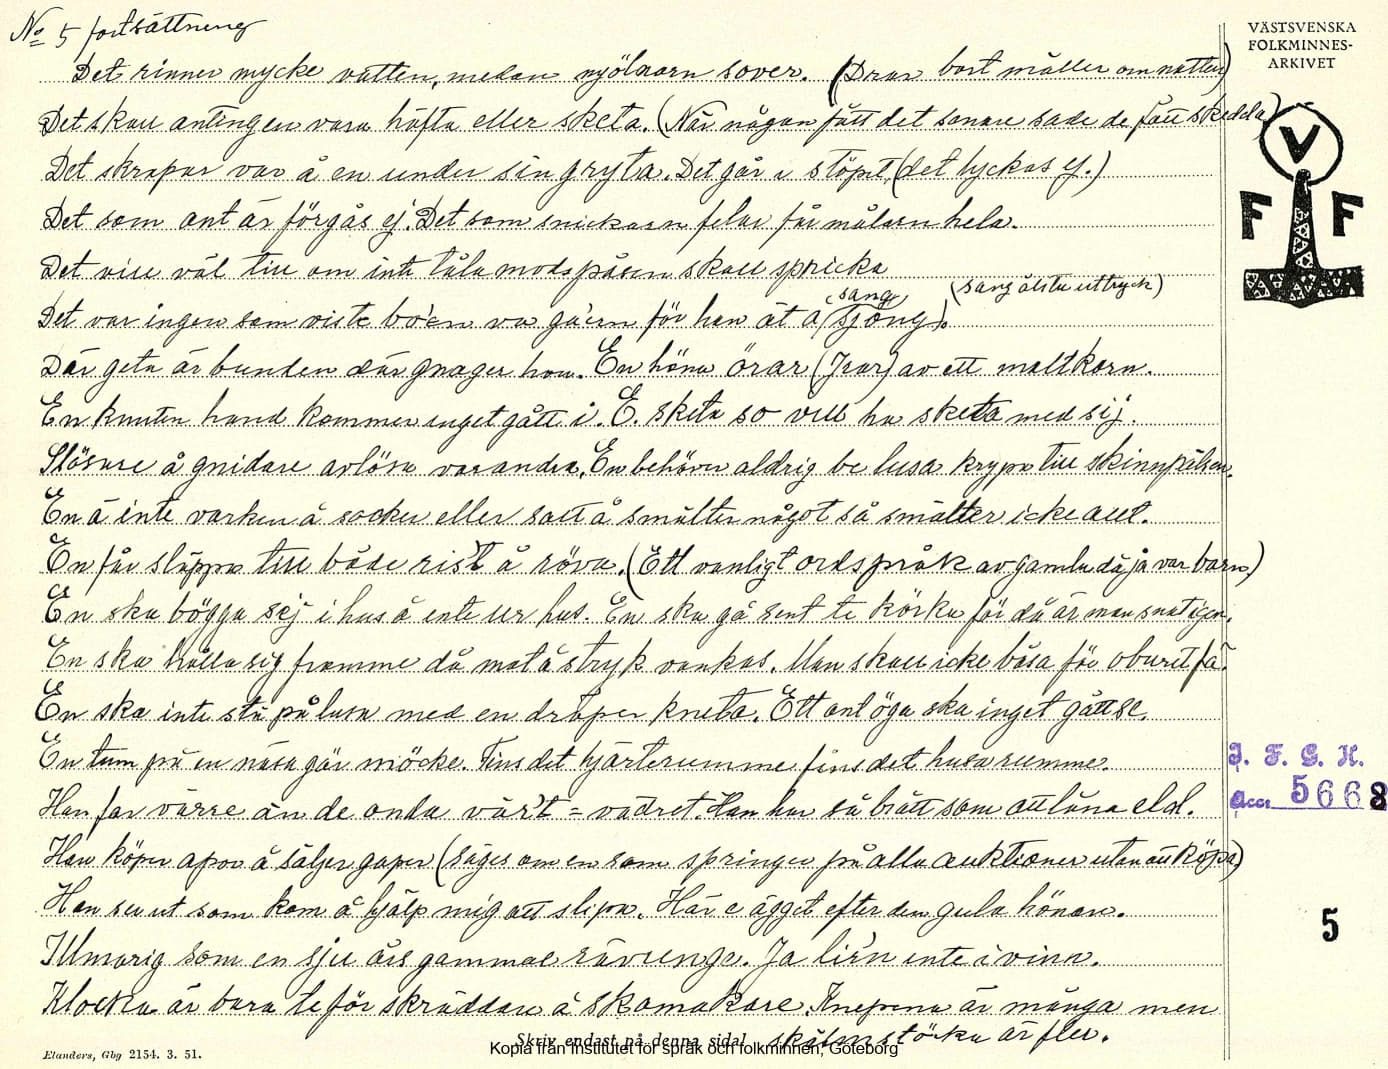 No 5 fortsättning
VÄSTSVENSKA
FOLKMINNES-
ARKIVET
Det rinner mycke vatten, medan mjölnarn sover. (Drar bort möller om natten)
Det skall antingen vara häfta eller sketa. (När någon fått det sanare sade de fått skedda)
Det skrapar var å en under sin gryta. Det går i stöpet (det lyckas ej.)
Det som ont är förgås ej. Det som snickarn felar får målarn hela.
Det vill väl till om inte tåla modspåsen skall spricka
(sang älsta uttryck)
Det var ingen som viste bo'en va ga'en för han åt å (sang) sjöng).
Där geta är bunden där gnager hon. En höna örar (Irar) av ett maltkorn.
En knuten hand kommer inget gått i. E. sketa so vill ha sketa med sij.
Slösare å gnidare avlösa varandra. En behöver aldrig be lusa krypa till skinnpälsen.
En å inte varken å socker eller salt å smälter något så smälter icke allt.
En får släppa till både rist å röva. (Ett vanligt ordspråk av gamla då jå var barn)
En ska bögga sej i hus å ente ur hus. En ska gå sent te körka för då är man snat igen.
En ska hålla sig framme då mat å stryk vankas. Man skall icke båsa för oburet fä.
En ska inte stå på lusa med en dräper kneta. Ett ont öga ska inget gått se.
En tum på en näsa gör möcke. Fins det hjärterumme fins det husarumme.
Han far värre än de onda vär't = vädret. Han har så brått som att låna eld.
Han köper apor å säljer gaper (säges om en som springer på alla auktioner utan att köpa)
Han ser ut som kom å hjälp mig att slipa. Här e ägget efter den gula hönan.
Illmarig som en sju års gammal rävunge. Ja lir'n inte i vinn.
Klocka är bara te för skräddare å skomakare. Knepena är många men
skälmstöcka är fler.
V
F F
I. F. G. H.
Acc. 5668
5
Skriv endast på denna sida!
Elanders, Gbg 2154. 3. 51.
Kopia från Institutet för språk och folkminnen, Göteborg